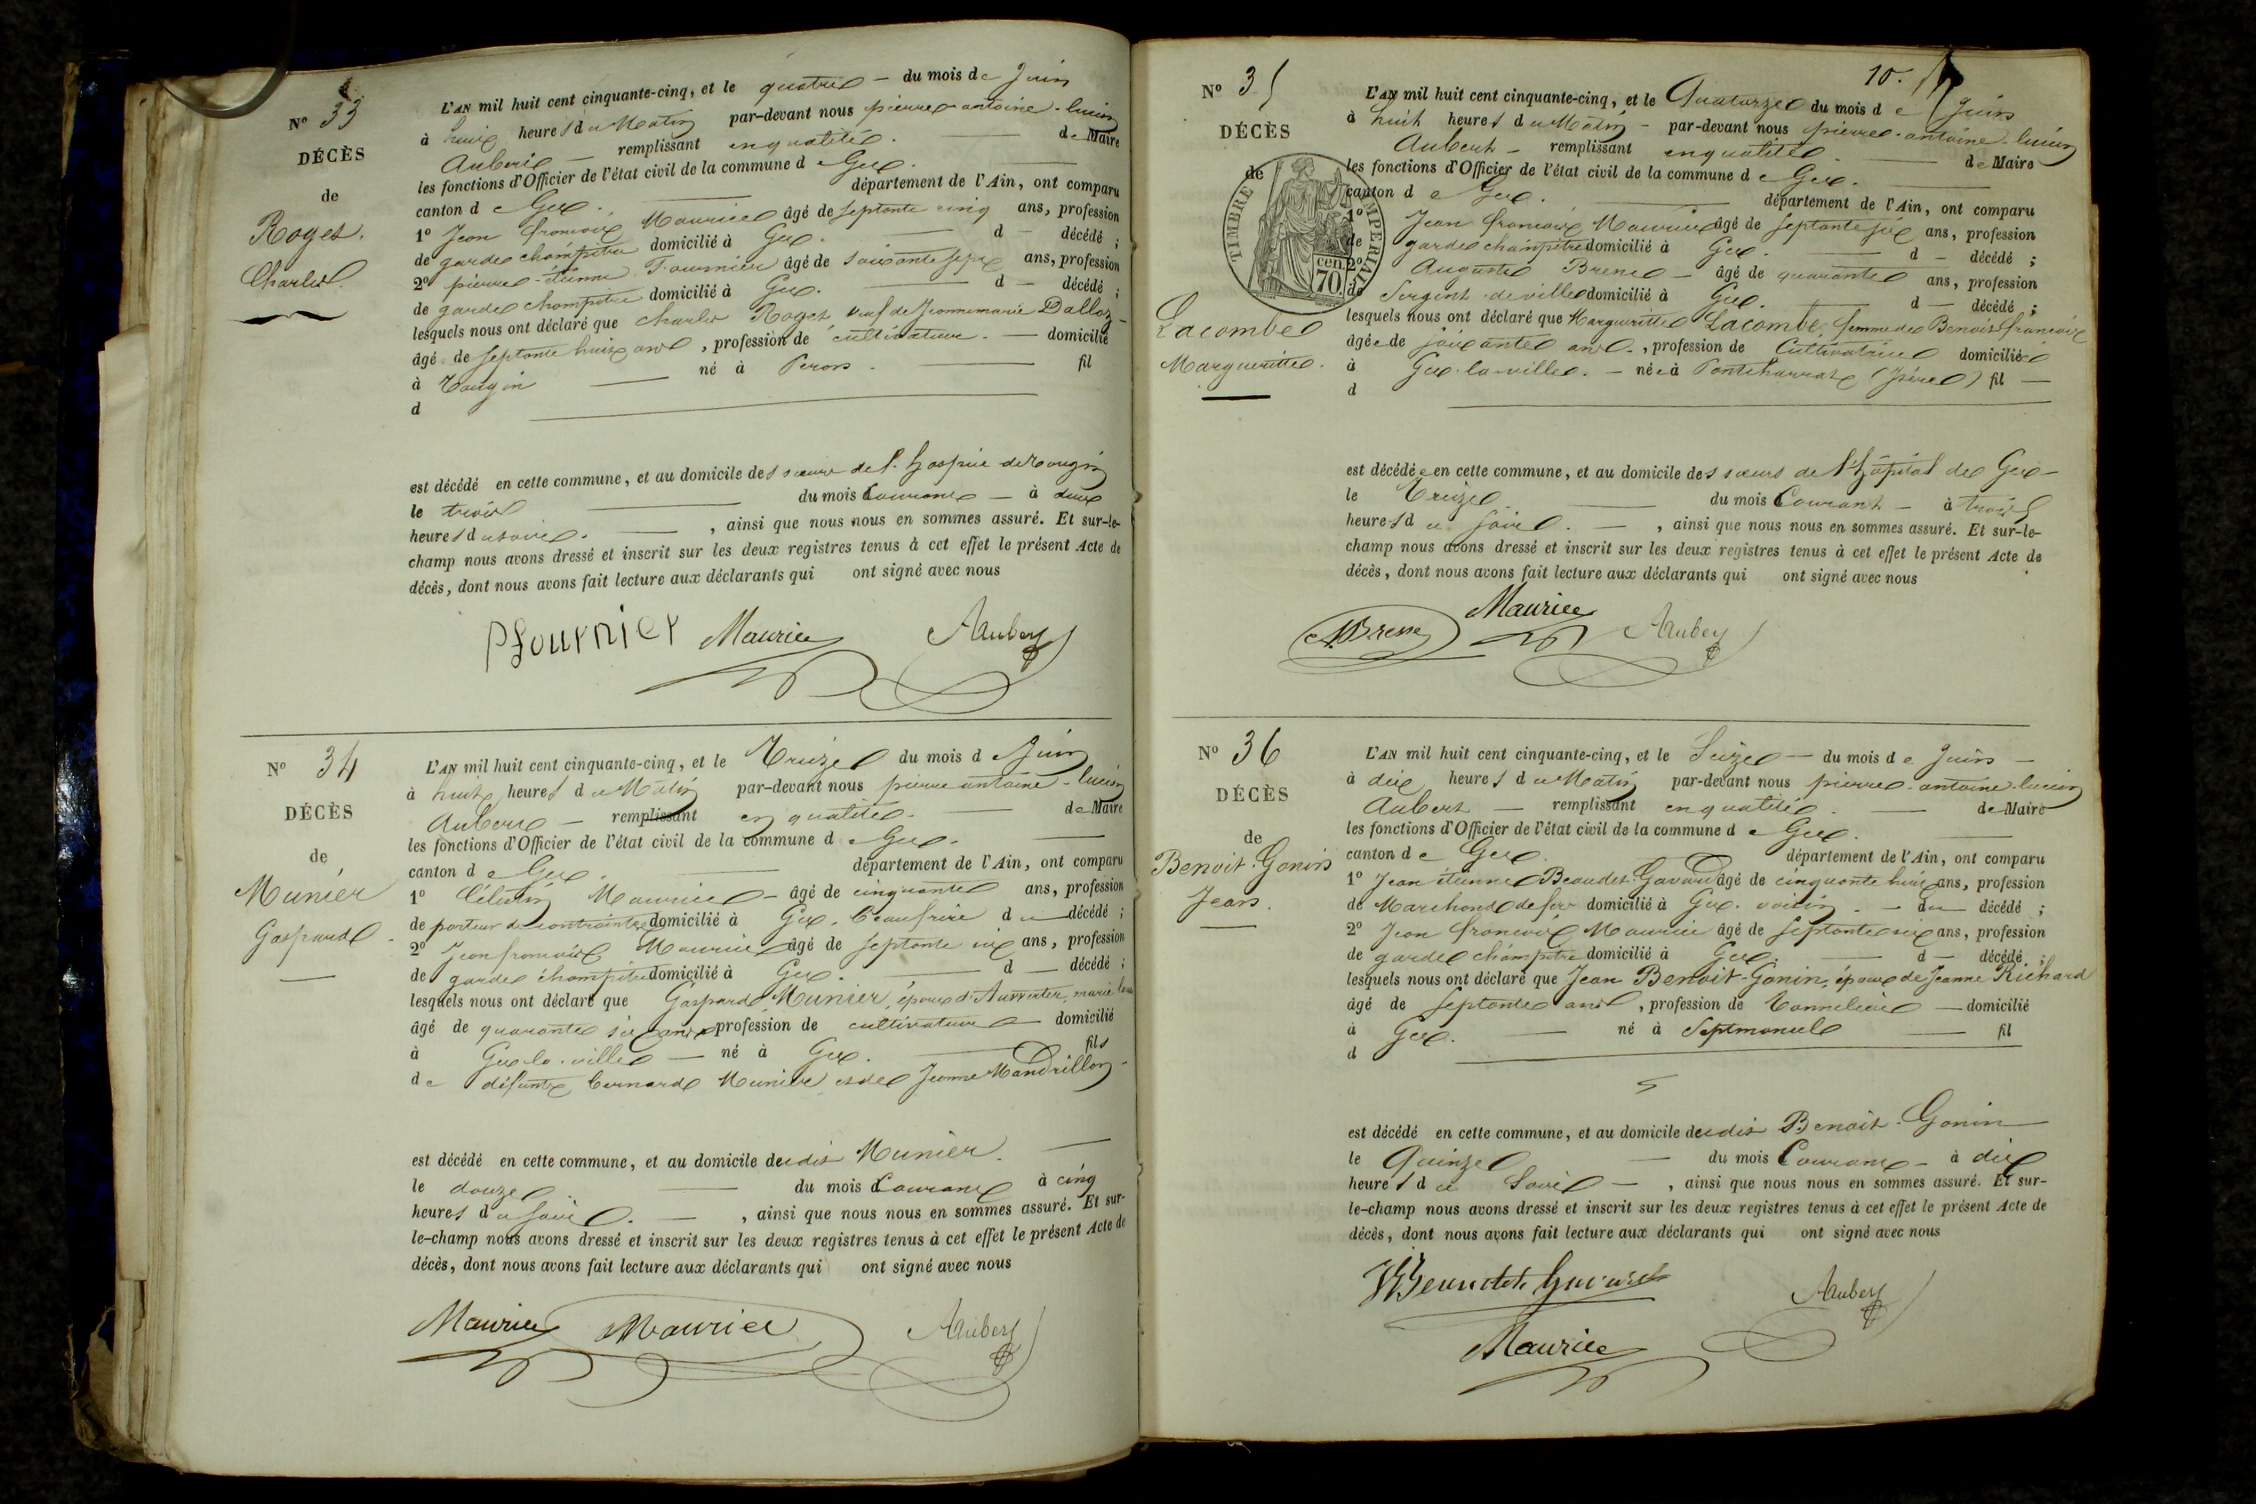 Nº 33
DÉCÈS
de
Roget
Charles.
L'AN mil huit cent cinquante-cinq, et le quatre – du mois de Juin
à huit heures du Matin par-devant nous pierre-antoine-lucien
Aubert – remplissant en qualité. de Maire
les fonctions d'Officier de l'état civil de la commune de Gex.
canton de Gex. département de l'Ain, ont comparu
1º Jean françois Maurice âgé de septante cinq ans, profession
de garde champêtre domicilié à Gex. d – décédé ;
2º pierre-étienne Fournier âgé de soixante sept ans, profession
de garde champêtre domicilié à Gex. d – décédé ;
lesquels nous ont déclaré que Charles Roget veuf de Jeannemarie Dalloz –
âgé de septante huit ans , profession de cultivateur. – domicilié
à Tougin né à Peron. fil
d
est décédé en cette commune, et au domicile des sœurs de l'hospice de Tougin
le trois du mois Courant – à deux
heures du soir. , ainsi que nous nous en sommes assuré. Et sur-le-
champ nous avons dressé et inscrit sur les deux registres tenus à cet effet le présent Acte de
décès, dont nous avons fait lecture aux déclarants qui ont signé avec nous
Pfournier Maurice Aubert
Nº 34
DÉCÈS
de
Munier
Gaspard.
L'AN mil huit cent cinquante-cinq, et le Treize du mois de Juin
à huit heures du Matin par-devant nous pierre antoine-lucien
Aubert – remplissant en qualité. de Maire
les fonctions d'Officier de l'état civil de la commune de Gex.
canton de Gex. département de l'Ain, ont comparu
1º Célestin Maurice – âgé de cinquante ans, profession
de porteur de contraintes domicilié à Gex. beaufrère du décédé ;
2º Jean françois Maurice âgé de septante six ans, profession
de garde champêtre domicilié à Gex. d – décédé ;
lesquels nous ont déclaré que Gaspard Munier, époux d' marie
âgé de quarante six ans profession de cultivateur – domicilié
à Gex-la-ville – né à Gex. fils
de défunt bernard Munier et de Jeanne Mandrillon –
est décédé en cette commune, et au domicile dudit Munier.
le douze du mois Courant à cinq
heures du soir. , ainsi que nous nous en sommes assuré. Et sur-
le-champ nous avons dressé et inscrit sur les deux registres tenus à cet effet le présent Acte de
décès, dont nous avons fait lecture aux déclarants qui ont signé avec nous
Maurice Maurice Aubert
10.
Nº 35
DÉCÈS
de
TIMBRE IMPERIAL
70 cen.
Lacombe
Margueritte.
L'AN mil huit cent cinquante-cinq, et le Quatorze du mois de Juin
à huit heures du Matin – par-devant nous pierre-antoine-lucien
Aubert – remplissant en qualité. de Maire
les fonctions d'Officier de l'état civil de la commune de Gex.
canton de Gex. département de l'Ain, ont comparu
1º Jean françois Maurice âgé de septante six ans, profession
de garde champêtre domicilié à Gex. d – décédé ;
2º Auguste Brene – âgé de quarante ans, profession
de Sergent de ville domicilié à Gex. d – décédé ;
lesquels nous ont déclaré que Margueritte Lacombe, femme de Benoit françois
âgée de soixante ans. , profession de Cultivatrice domiciliée
à Gex-la-ville. – née à Pontcharrat (Isère) fil –
d
est décédée en cette commune, et au domicile des sœurs de l'hôpital de Gex –
le Treize du mois Courant – à trois
heures du soir. – , ainsi que nous nous en sommes assuré. Et sur-le-
champ nous avons dressé et inscrit sur les deux registres tenus à cet effet le présent Acte de
décès, dont nous avons fait lecture aux déclarants qui ont signé avec nous
A.Bresne Maurice Aubert
Nº 36
DÉCÈS
de
Benoit-Gonin
Jean.
L'AN mil huit cent cinquante-cinq, et le Seize – du mois de Juin –
à dix heures du Matin par-devant nous pierre-antoine-lucien
Aubert – remplissant en qualité. de Maire
les fonctions d'Officier de l'état civil de la commune de Gex.
canton de Gex. département de l'Ain, ont comparu
1º Jean étienne Beaudet-Gavard âgé de cinquante huit ans, profession
de Marchand de fer domicilié à Gex. voisin – du décédé ;
2º Jean françois Maurice âgé de septante six ans, profession
de garde champêtre domicilié à Gex. d – décédé ;
lesquels nous ont déclaré que Jean Benoit-Gonin, époux de Jeanne Richard
âgé de septante ans , profession de Tonnelier – domicilié
à Gex. né à Septmoncel fil
d
est décédé en cette commune, et au domicile dudit Benoit-Gonin
le Quinze – du mois Courant – à dix
heures du Soir – , ainsi que nous nous en sommes assuré. Et sur-
le-champ nous avons dressé et inscrit sur les deux registres tenus à cet effet le présent Acte de
décès, dont nous avons fait lecture aux déclarants qui ont signé avec nous
Beaudet Gavard Aubert
Maurice